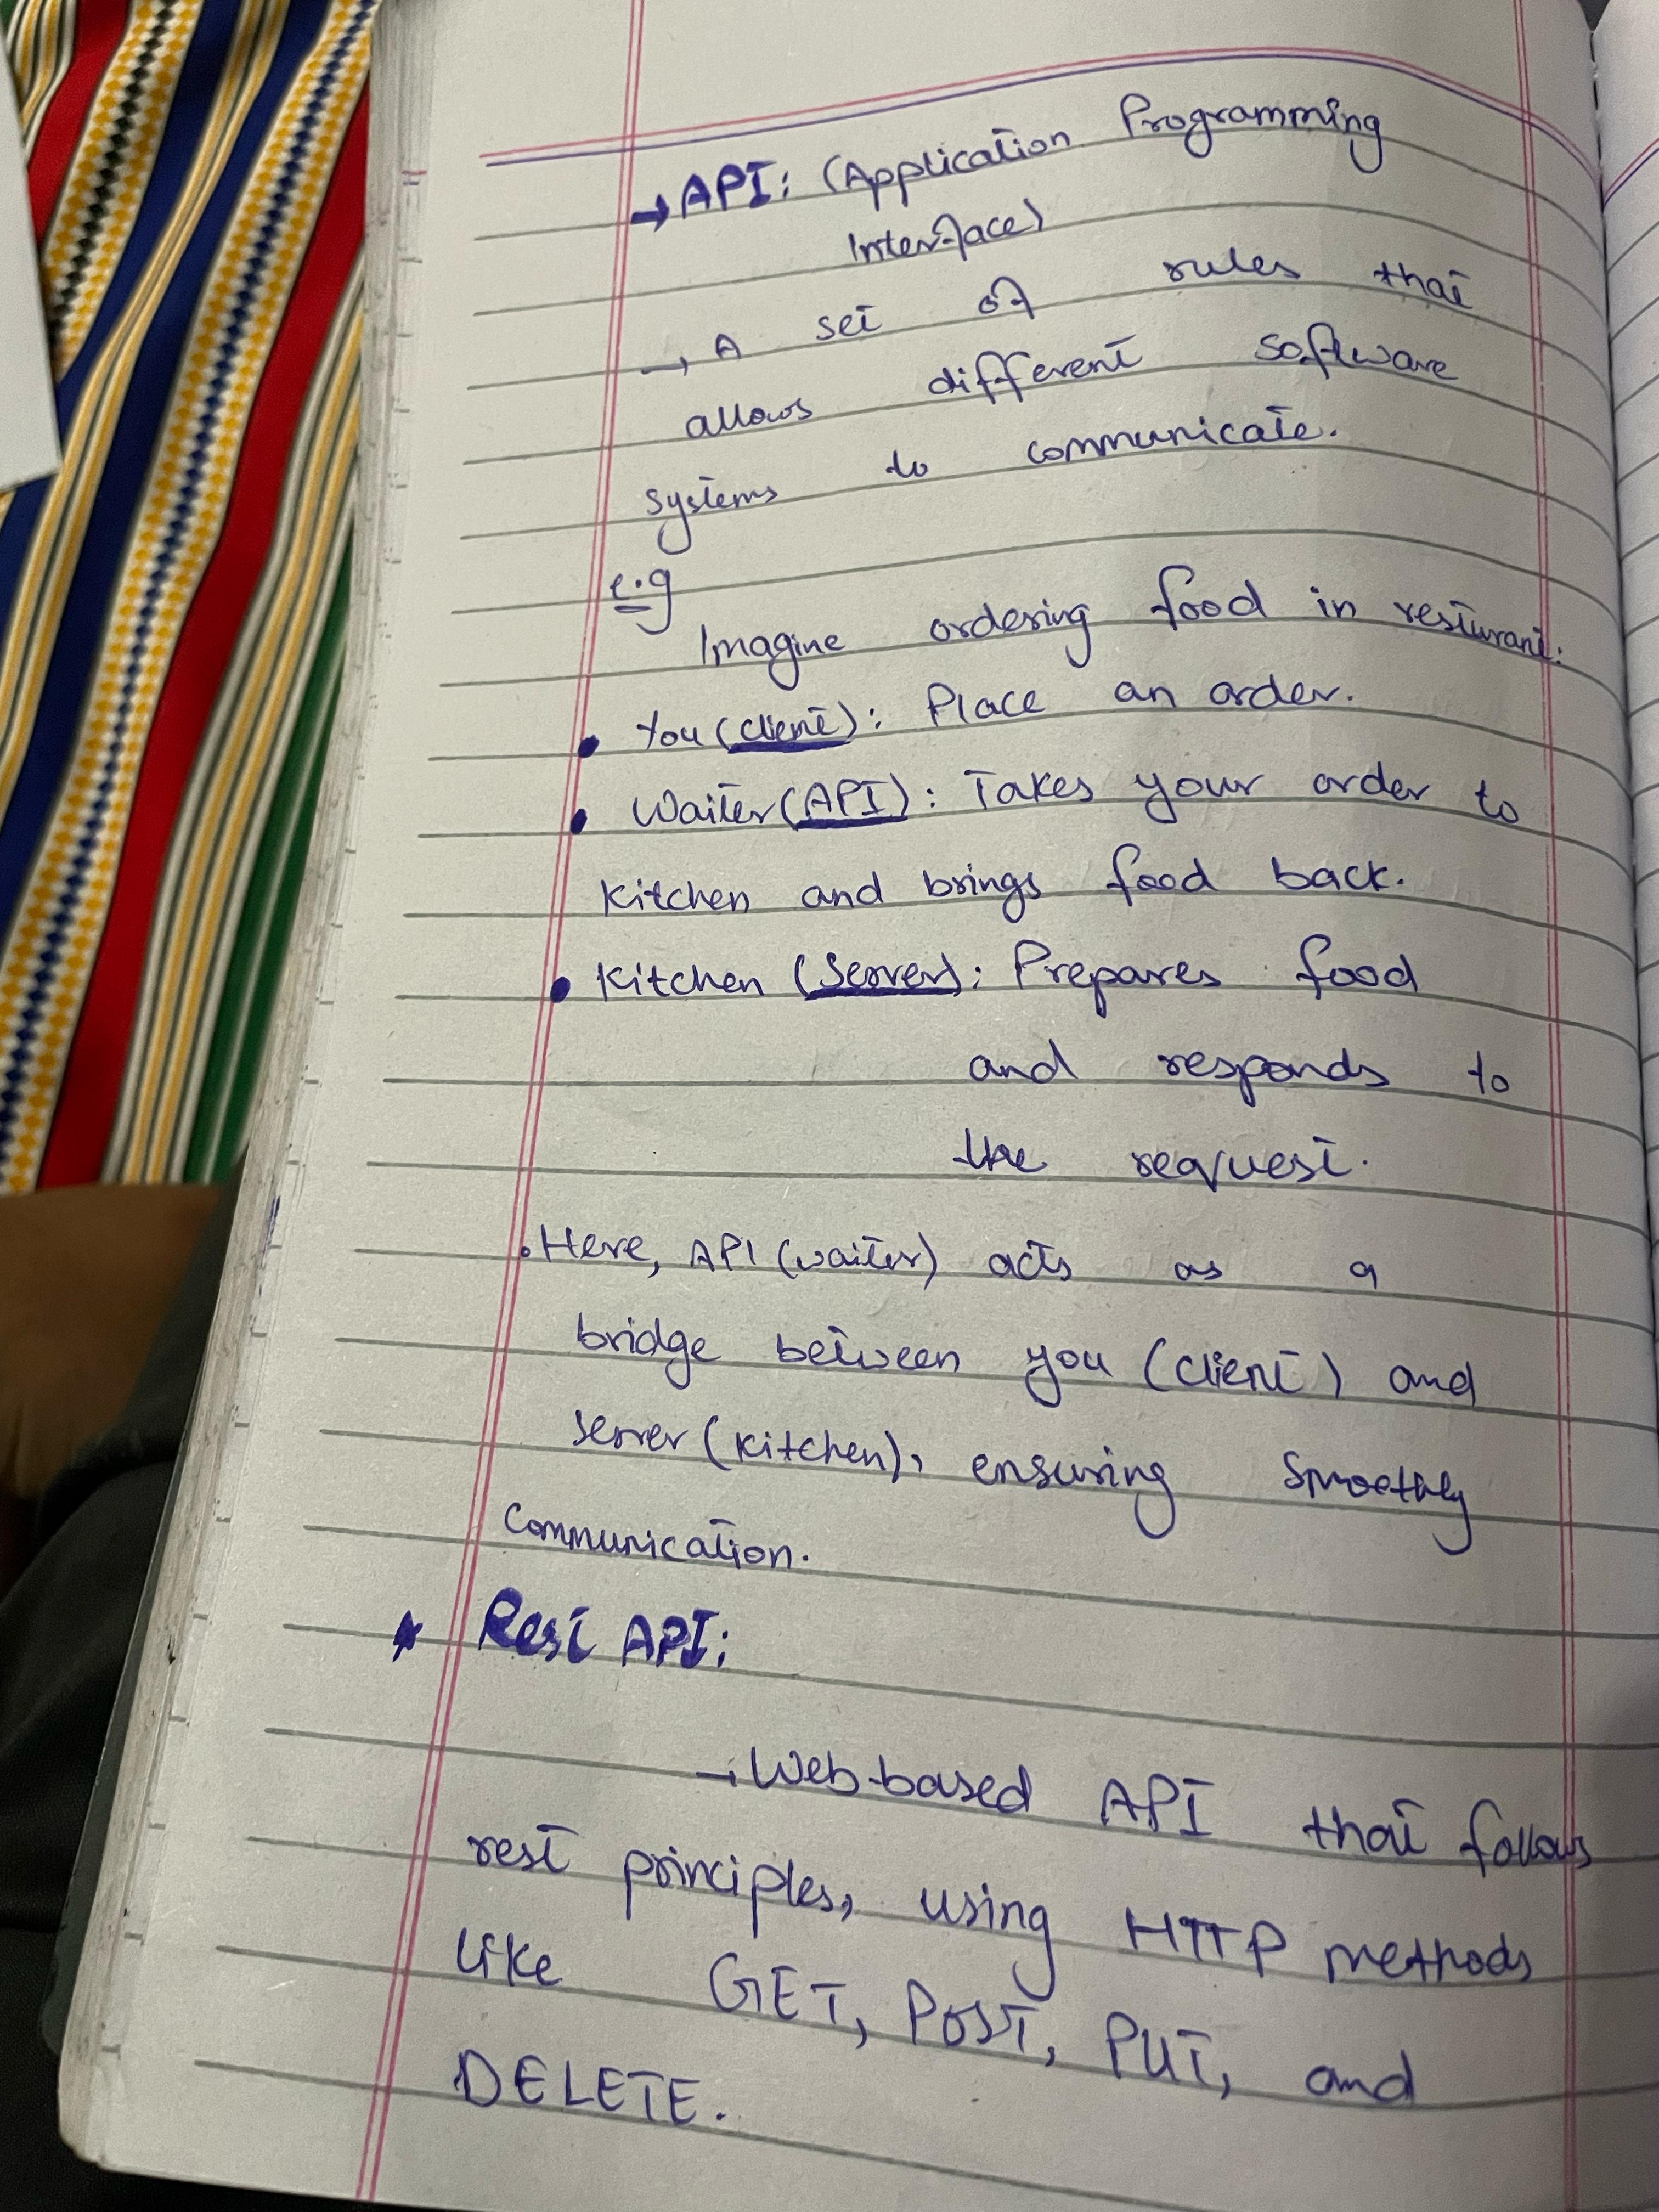 → API: (Application Programming
Interface)
→ A set of rules that
allows different software
systems to communicate.
e.g
Imagine ordering food in resturant:
• You (client): Place an order.
• Waiter (API): Takes your order to
kitchen and brings food back.
• Kitchen (Server): Prepares food
and responds to
the request.
• Here, API (waiter) acts as a
bridge between you (client) and
server (kitchen), ensuring smoothly
communication.
* Rest API:
→ Web-based API that follows
rest principles, using HTTP methods
like GET, POST, PUT, and
DELETE.